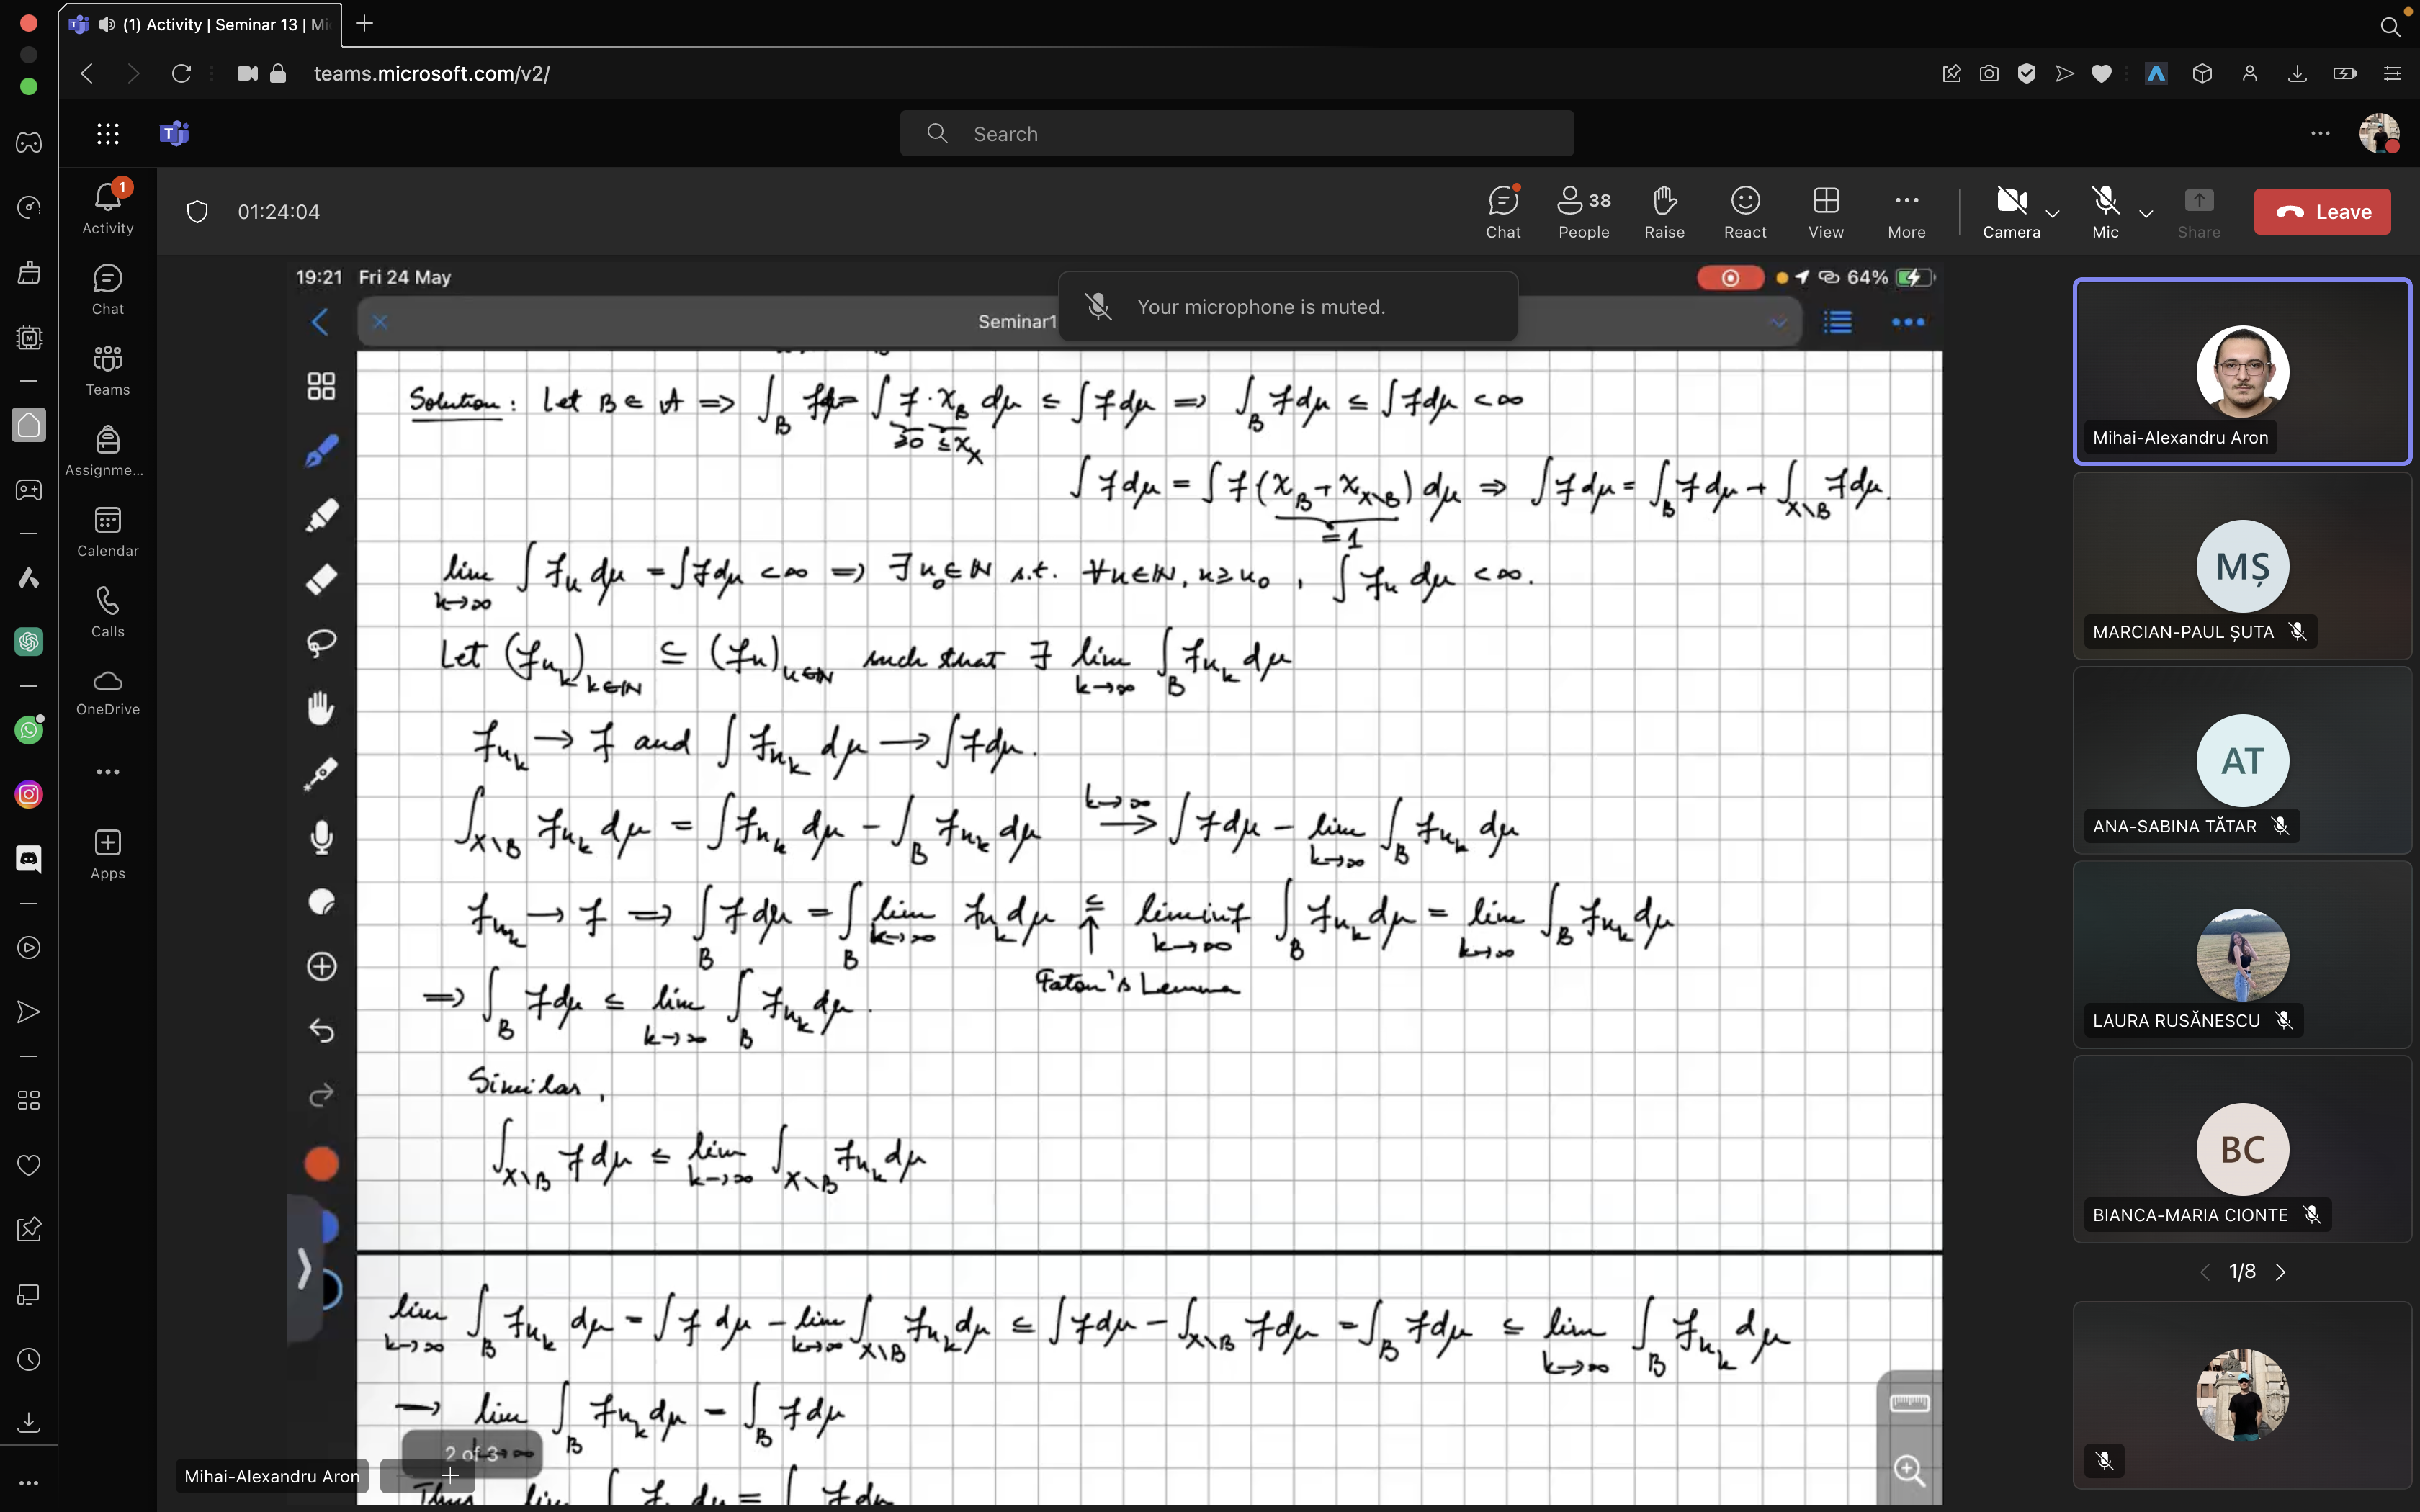 (1) Activity | Seminar 13 | Mi
teams.microsoft.com/v2/
Search
1
Activity
Chat
Teams
Assignme...
Calendar
Calls
OneDrive
Apps
01:24:04
Chat
38
People
Raise
React
View
More
Camera
Mic
Share
Leave
19:21 Fri 24 May
64%
Seminar1
Your microphone is muted.
Solution: Let B ∈ A ⇒ ∫_B f dμ = ∫ f · χ_B dμ ≤ ∫ f dμ ⇒ ∫_B f dμ ≤ ∫ f dμ < ∞
≥0 ≤ χ_X
∫ f dμ = ∫ f (χ_B + χ_{X\B}) dμ ⇒ ∫ f dμ = ∫_B f dμ + ∫_{X\B} f dμ.
= 1
lim_{k→∞} ∫ f_n dμ = ∫ f dμ < ∞ ⇒ ∃ n_0 ∈ N s.t. ∀ n ∈ N, n ≥ n_0, ∫ f_n dμ < ∞.
Let (f_{n_k})_{k∈N} ⊆ (f_n)_{n∈N} such that ∃ lim_{k→∞} ∫_B f_{n_k} dμ
f_{n_k} → f and ∫ f_{n_k} dμ → ∫ f dμ.
∫_{X\B} f_{n_k} dμ = ∫ f_{n_k} dμ - ∫_B f_{n_k} dμ →^{k→∞} ∫ f dμ - lim_{k→∞} ∫_B f_{n_k} dμ
f_{n_k} → f ⇒ ∫_B f dμ = ∫_B lim_{k→∞} f_{n_k} dμ ≤ liminf_{k→∞} ∫_B f_{n_k} dμ = lim_{k→∞} ∫_B f_{n_k} dμ
↑
Fatou's Lemma
⇒ ∫_B f dμ ≤ lim_{k→∞} ∫_B f_{n_k} dμ.
Similar,
∫_{X\B} f dμ ≤ lim_{k→∞} ∫_{X\B} f_{n_k} dμ
lim_{k→∞} ∫_B f_{n_k} dμ = ∫ f dμ - lim_{k→∞} ∫_{X\B} f_{n_k} dμ ≤ ∫ f dμ - ∫_{X\B} f dμ = ∫_B f dμ ≤ lim_{k→∞} ∫_B f_{n_k} dμ
→ lim_{k→∞} ∫_B f_{n_k} dμ = ∫_B f dμ
2 of 3
Thus lim ∫ f dμ = ∫ f dμ
Mihai-Alexandru Aron
Mihai-Alexandru Aron
MȘ
MARCIAN-PAUL ȘUTA
AT
ANA-SABINA TĂTAR
LAURA RUSĂNESCU
BC
BIANCA-MARIA CIONTE
1/8